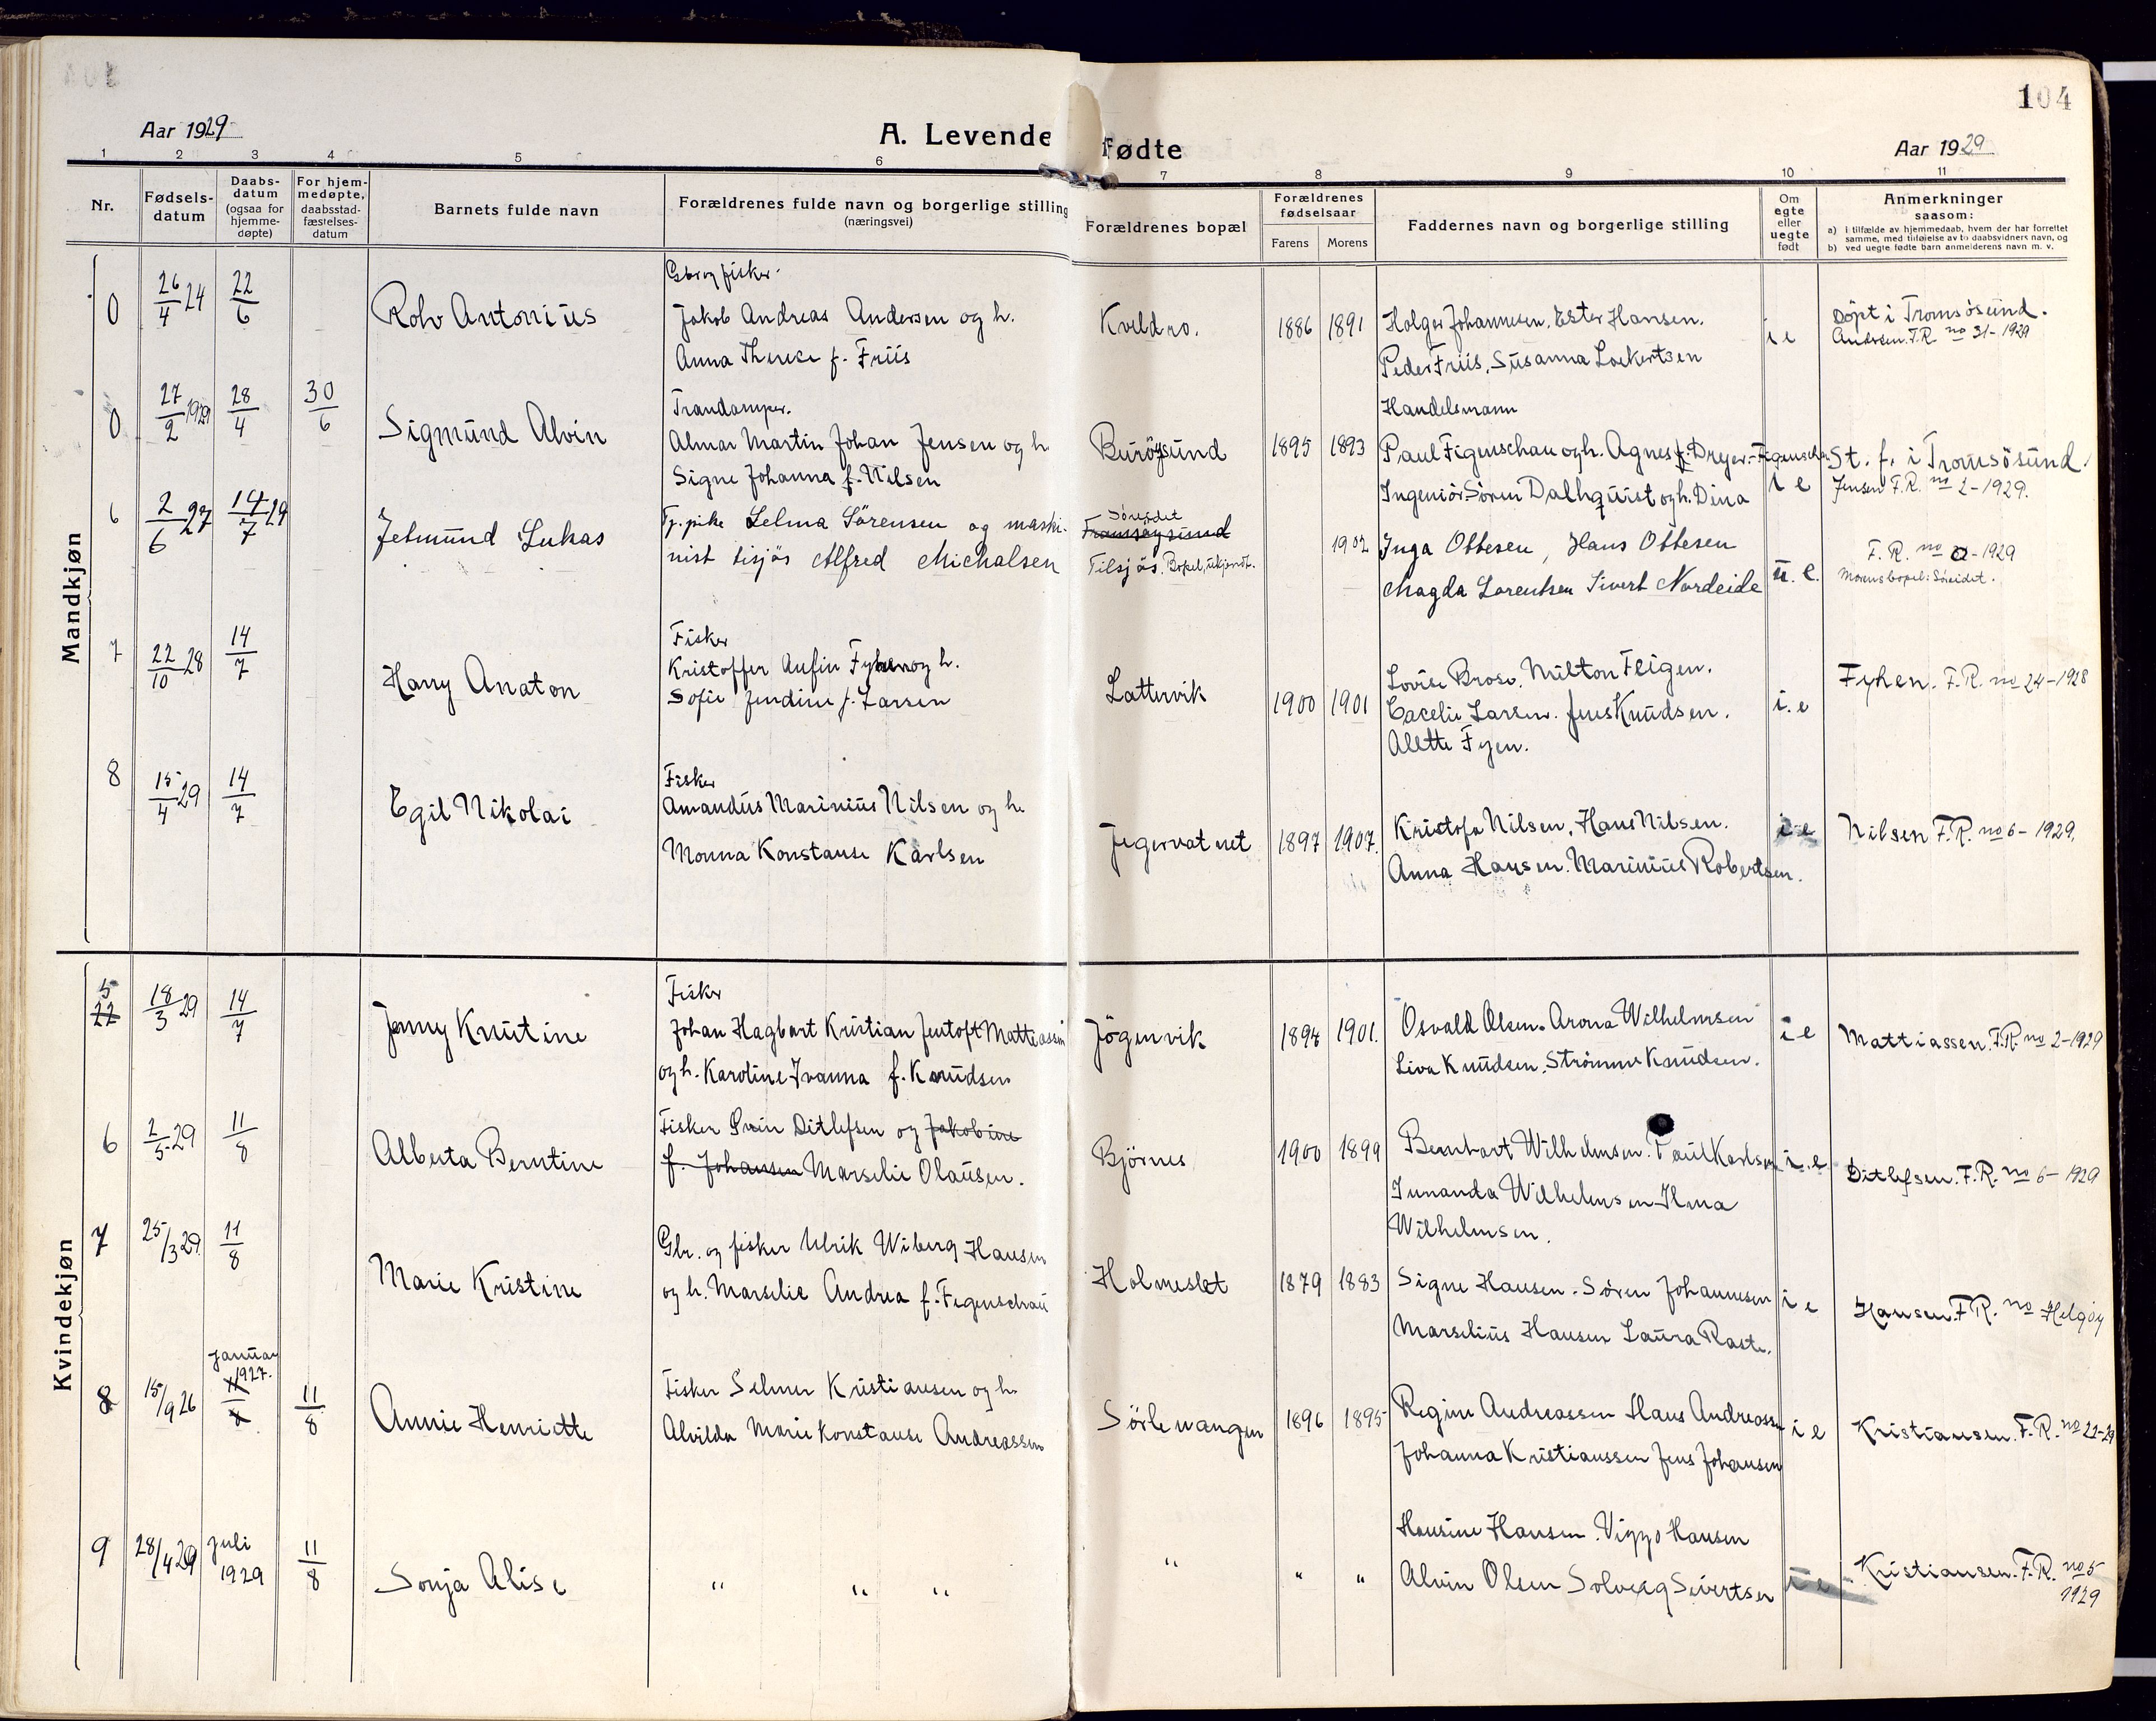 104
Aar 1929
A. Levende fødte
Aar 1929
1 2 3 4 5 6 7 8 9 10 11
Nr.
Fødsels-
datum
Daabs-
datum
(ogsaa for
hjemme-
døpte)
For hjem-
medøpte,
daabsstad-
fæstelses-
datum
Barnets fulde navn
Forældrenes fulde navn og borgerlige stilling
(næringsvei)
Forældrenes bopæl
Forældrenes
fødselsaar
Farens Morens
Faddernes navn og borgerlige stilling
Om
egte
eller
uegte
født
Anmerkninger
saasom:
a) i tilfælde av hjemmedaab, hvem der har forrettet
samme, med tilføielse av to daabsvidners navn, og
b) ved uegte fødte barn anmelderens navn m. v.
Mandkjøn
0 26/4 24 22/6 Rolv Antonius
Gbr og fisker
Jakob Andreas Andersen og h.
Anna Therese f. Friis
Kveldro. 1886 1891
Holger Johannesen, Ester Hansen.
Peder Friis, Susanna Lockertsen
i e
Döpt i Tromsøsund.
Andersen. F.R. no 31-1929
0 27/2 1929 28/4 30/6 Sigmund Alvin
Trandamper.
Almar Martin Johan Jensen og h
Signe Johanna f. Nilsen
Burøysund 1895 1893
Handelsmann
Paul Figenschau og h. Agnes f. Dreyer-Figenschau
Ingeniör Sören Dalhquist og h. Dina
i e
St. f. i Tromsösund.
Jensen F.R. no 2-1929.
6 2/6 27 14/7 29 Jetmund Lukas
Tj. pike Selma Sörensen og maski-
nist tisjös Alfred Michalsen
Søreidet
Fransøysund
Tilsjös. Bopel, ukjendt.
1902
Inga Ottesen, Hans Ottesen
Magda Lorentsen Sivert Nordeide
u. e.
F. R. no 2-1929
Morens bopel: Søreidet.
7 22/10 28 14/7 Harry Anaton
Fisker
Kristoffer Anfin Fyhen og h.
Sofie Jendine f. Larsen
Lattervik 1900 1901
Lovise Brosv. Milton Fligen.
Cacelie Larsen. Jens Knudsen.
Alette Fyen.
i. e
Fyhen. F.R. no 24-1928
8 15/4 29 14/7 Egil Nikolai
Fisker
Amandus Marinius Nilsen og h.
Monna Konstanse Karlsen
Jegervatnet 1897 1907.
Kristofa Nilsen, Hans Nilsen.
Anna Hansen. Marinius Robertsen.
i e
Nilsen F.R. no 6-1929.
Kvindekjøn
5 22 18/3 29 14/7 Jenny Knutine
Fisker
Johan Hagbart Kristian Jentoft Mattiassen
og h. Karoline Ivanna f. Knudsen
Jögervik 1894 1901.
Osvald Olsen. Arona Wilhelmsen
Liva Knudsen. Strömme Knudsen.
i e
Mattiassen. F.R. no 2-1929
6 2/5 29 11/8 Alberta Berntine
Fisker Svein Ditlefsen og Jakobine
f. Johansen Marselie Olausen.
Björnes 1900 1899
Bernhart Wilhelmsen. Paul Karlsen
Junanda Wilhelmsen Ilma
Wilhelmsen.
i. e
Ditlefsen. F.R. no 6-1929
7 25/3 29 11/8 Marie Kristine
Gbr. og fisker Ulrik Wiberg Hansen
og h. Marselie Andrea f. Figenschau
Holmeslet 1879 1883
Signe Hansen. Sören Johannesen
Marselius Hansen Laura Raste.
i e
Hansen. F.R. no Helgöy
8 15/9 26 januar 1927. 11/8 11/8 Annie Henriette
Fisker Selmer Kristiansen og h.
Alvilda Marie Konstanse Andreassen
Sörlenangen 1896 1895
Regine Andreassen Hans Andreassen
Johanna Kristianssen Jens Johansen
i e
Kristiansen. F.R. no 22-29
9 28/4 29 juli 1929 11/8 Sonja Alise
" " "
" " "
Hansine Hansen. Viggo Hansen
Alvin Olsen Solveig Sivertsen
i e
Kristiansen. F.R. no 5
1929